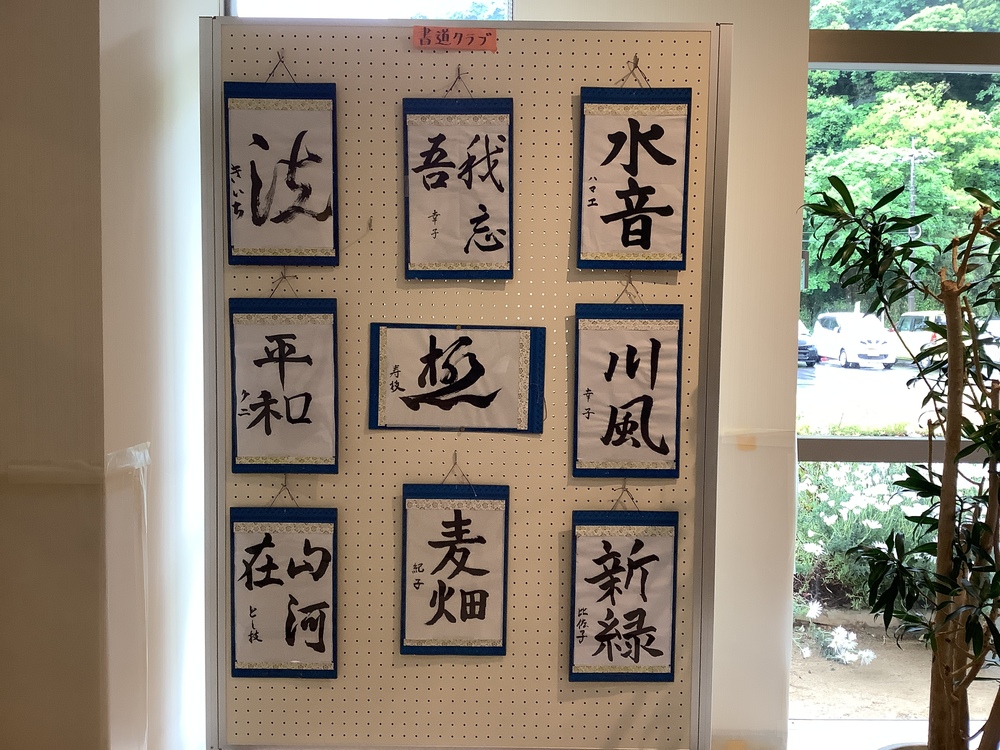 書道クラブ
水音
ハマエ
我忘
吾
幸子
きいち
川風
幸子
平和
クニ
新緑
比佐子
麦畑
紀子
山河
在
とし枝